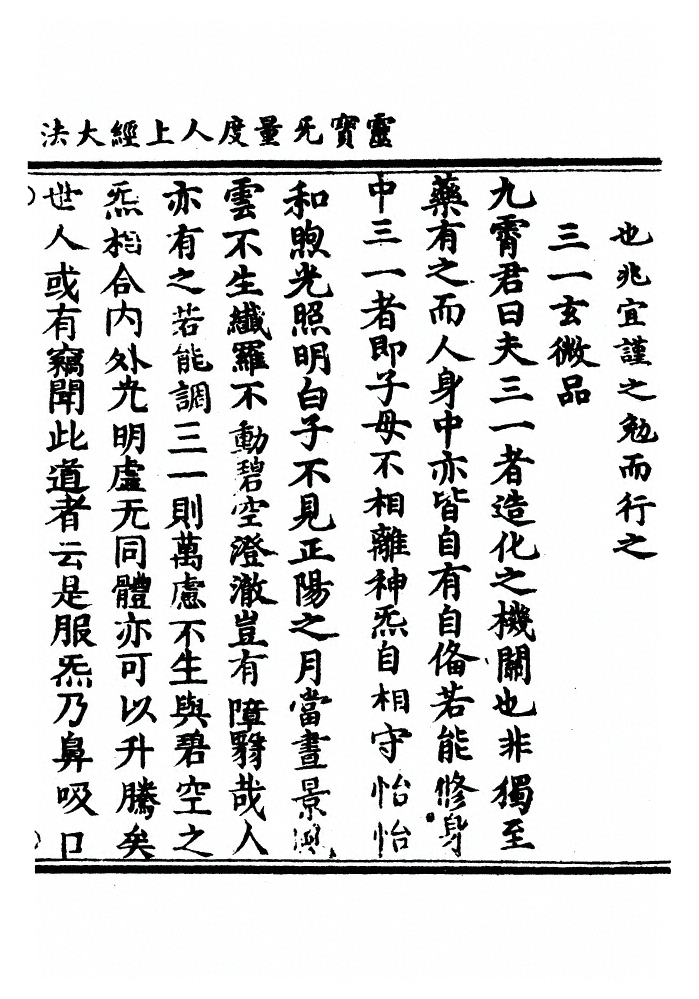 靈寶无量度人上經大法
也兆宜謹之勉而行之
三一玄微品
九霄君曰夫三一者造化之機關也非獨至
藥有之而人身中亦皆自有自俻若能修身
中三一者即子母不相離神炁自相守怡怡
和煦光照明白子不見正陽之月當晝景
雲不生纖羅不動碧空澄澈豈有障翳哉人
亦有之若能調三一則萬慮不生與碧空之
炁相合内外光明虛无同體亦可以升騰矣
世人或有竊聞此道者云是服炁乃鼻吸口